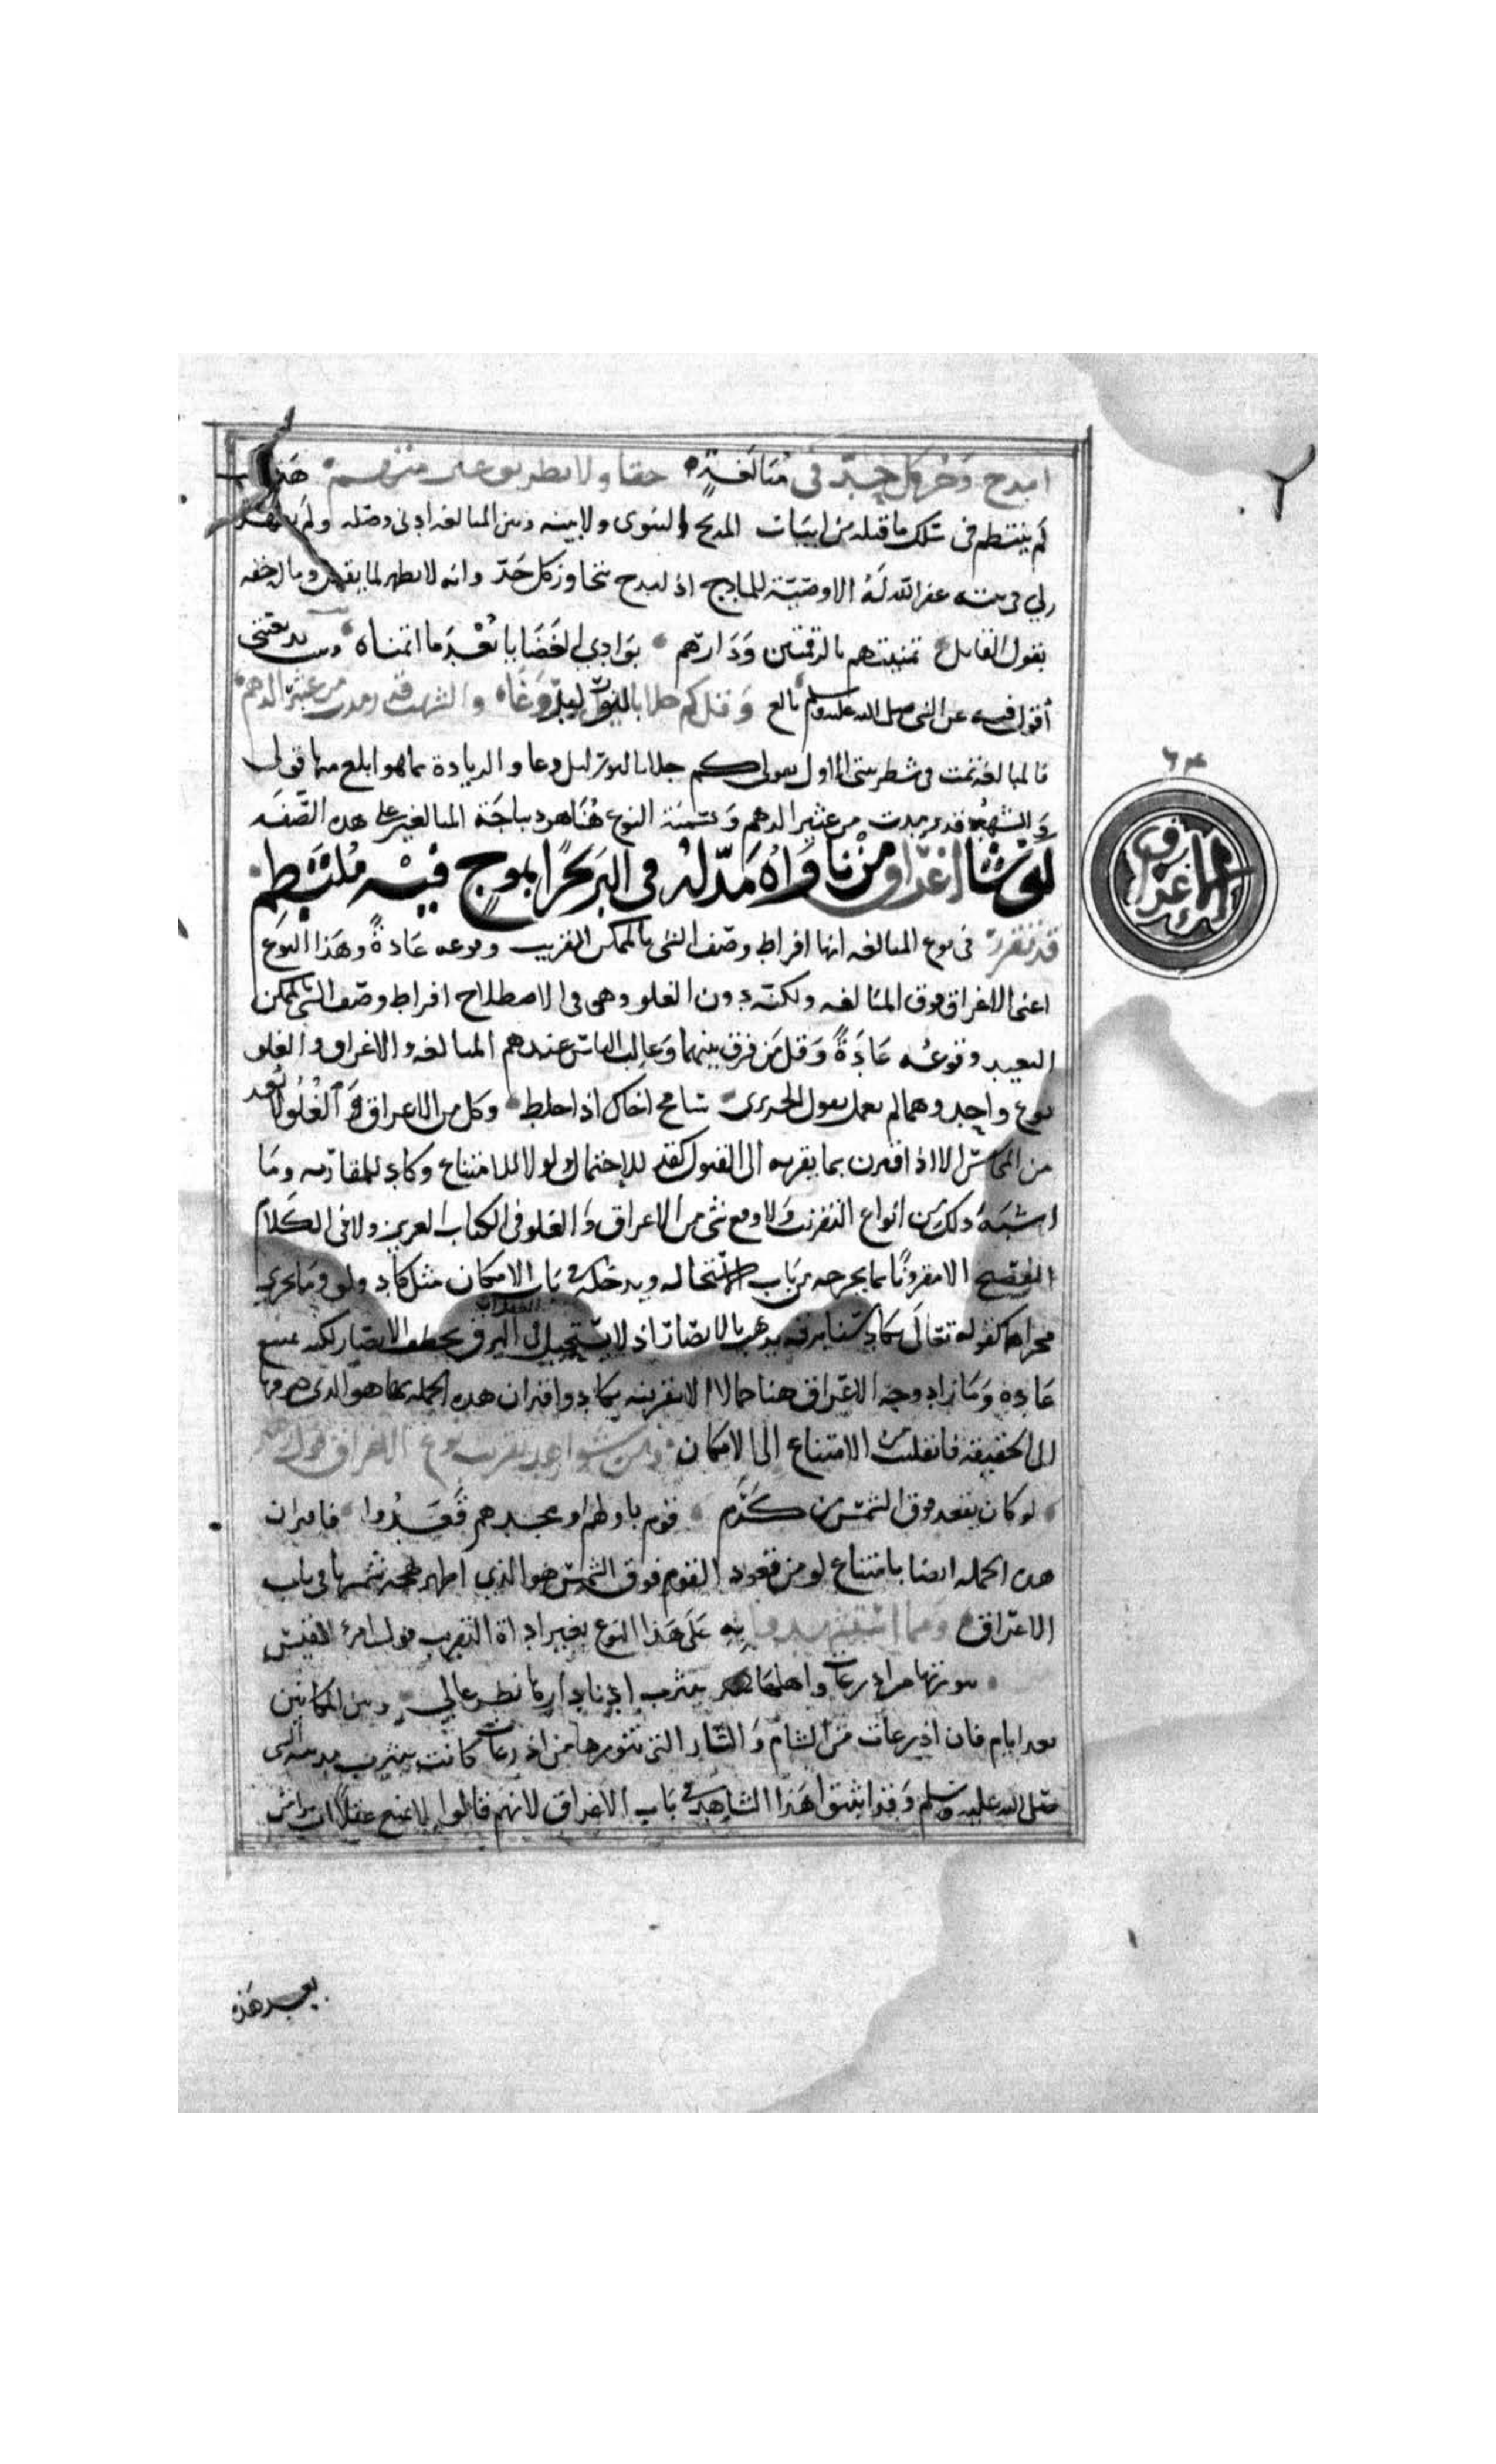 امدح وجز كل حد في مبالغة حقا ولا تطر
لم ينتظم في سلك ما قبله من ابيات المديح النبوي ولا بينه وبين المبالغة ادنى وصلة ولم يظهر
لي في بيته غفر الله له الا وصيته للمادح اذ لمدح تتجاوز كل حد وانه لا يطهر
بقول القائل تمنيتهم بالرقمتين ودارهم بوادي الغضا يا بعد ما اتمناه وبيت بديعيتي
اقول فيه عن النبي صلى الله عليه وسلم بالغ وقل كم جلا بالنور ليل وغا والشهب قد رمدت من عثير الدهم
فالمبالغة تمت في شطر بيتي الاول بقولي كم جلا بالنور ليل وغا والزيادة بما هو ابلغ منها قولي
والشهب قد رمدت من عثير الدهم وتسمية النوع هنا هو ديباجة المبالغة على هذه الصفة
٦٤
الاغراق
لو شا اغراق من ناواه مد له في البر بحرا بموج فيه ملتطم
قد تقرر في نوع المبالغة انها افراط وصف الشي بالممكن القريب وقوعه عادة وهذا النوع
اعني الاغراق فوق المبالغة ولكنه دون الغلو وهي في الاصطلاح افراط وصف الشي بالممكن
البعيد وقوعه عادة وقل من فرق بينهما وغالب الناس عندهم المبالغة والاغراق والغلو
نوع واحد وهما لم يعمل بقول الحريري سامح اخاك اذا خلط وكل من الاغراق والغلو لا يعد
من المحاسن الا اذا اقترن بما يقربه الى القبول كقد للاحتمال ولولا للامتناع وكاد للمقاربة وما
اشبه ذلك من انواع التقريب ولا وقع شي من الاغراق والغلو في الكتاب العزيز ولا في الكلام
الفصيح الا مقرونا بما يخرجه من باب الاستحالة ويدخله في باب الامكان مثل كاد ولو وما يجري
مجراهما كقوله تعالى يكاد سنا برقه يذهب بالابصار اذ لا يستحيل في العقل ان البرق يخطف الابصار لكنه يمتنع
عادة وما زاد وجه الاغراق هنا جمالا الا تقريبه بيكاد واقتران هذه الجملة بها هو الذي صرفها
الى الحقيقة فانقلبت من الامتناع الى الامكان ومن شواهد تقريب نوع الاغراق
لو كان يقعد فوق الشمس من كرم قوم باولهم او مجدهم قعدوا فاقتران
هذه الجملة ايضا بامتناع لو من قعود القوم فوق الشمس هو الذي اظهر بهجة شمسها في باب
الاغراق ومما استشهدوا به على هذا النوع بغير اداة التقريب قول امرئ القيس
تنورتها من اذرعات واهلها بيثرب ادنى دارها نظر عالي وبين المكانين
بعد ايام فان اذرعات من الشام والنار التي تنورها من اذرعات كانت بيثرب مدينة النبي
صلى الله عليه وسلم وقد اثبتوا هذا الشاهد في باب الاغراق لانهم قالوا لا يمتنع عقلا ان
بعد هذه